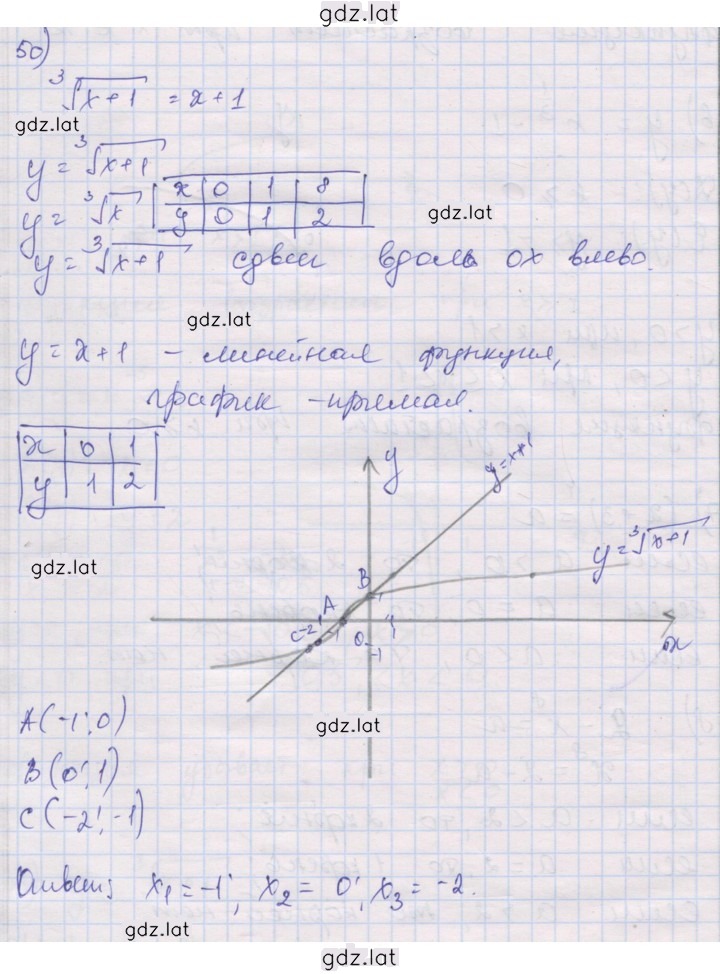 gdz.lat
50)
∛(x+1) = x+1
gdz.lat
y = ∛(x+1)
y = ∛x | x | 0 | 1 | 8 |
| y | 0 | 1 | 2 |
gdz.lat
y = ∛(x+1) сдвиг вдоль ox влево.
gdz.lat
y = x+1 - линейная функция,
график - прямая.
| x | 0 | 1 |
| y | 1 | 2 |
y
y=x+1
gdz.lat
y=∛(x+1)
B
1
A
C -2
-1
0
1
-1
x
gdz.lat
A(-1; 0)
B(0; 1)
C(-2; -1)
Ответ: x₁ = -1; x₂ = 0; x₃ = -2.
gdz.lat
gdz.lat